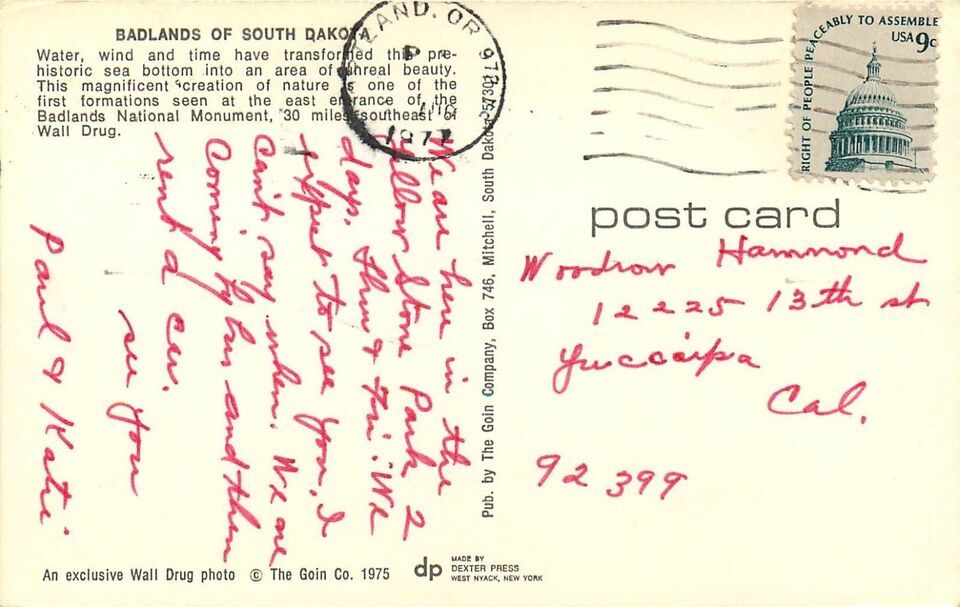 BADLANDS OF SOUTH DAKOTA
Water, wind and time have transformed this pre-
historic sea bottom into an area of unreal beauty.
This magnificent creation of nature is one of the
first formations seen at the east entrance of the
Badlands National Monument, 30 miles southeast of
Wall Drug.
We are here in the
Yellow Stone Park 2
days. Thur & Fri. We
expect to see you. I
Can't say when. We are
Coming by bus and then
rent a car.
see you
Paul & Katie
An exclusive Wall Drug photo © The Goin Co. 1975
Pub. by The Goin Company, Box 746, Mitchell, South Dakota 57301
dp
MADE BY
DEXTER PRESS
WEST NYACK, NEW YORK
LAND, OR 972
1977
RIGHT OF PEOPLE PEACEABLY TO ASSEMBLE
USA 9c
post card
Woodrow Hammond
12225 13th st
Yuccaipa
Cal.
92399